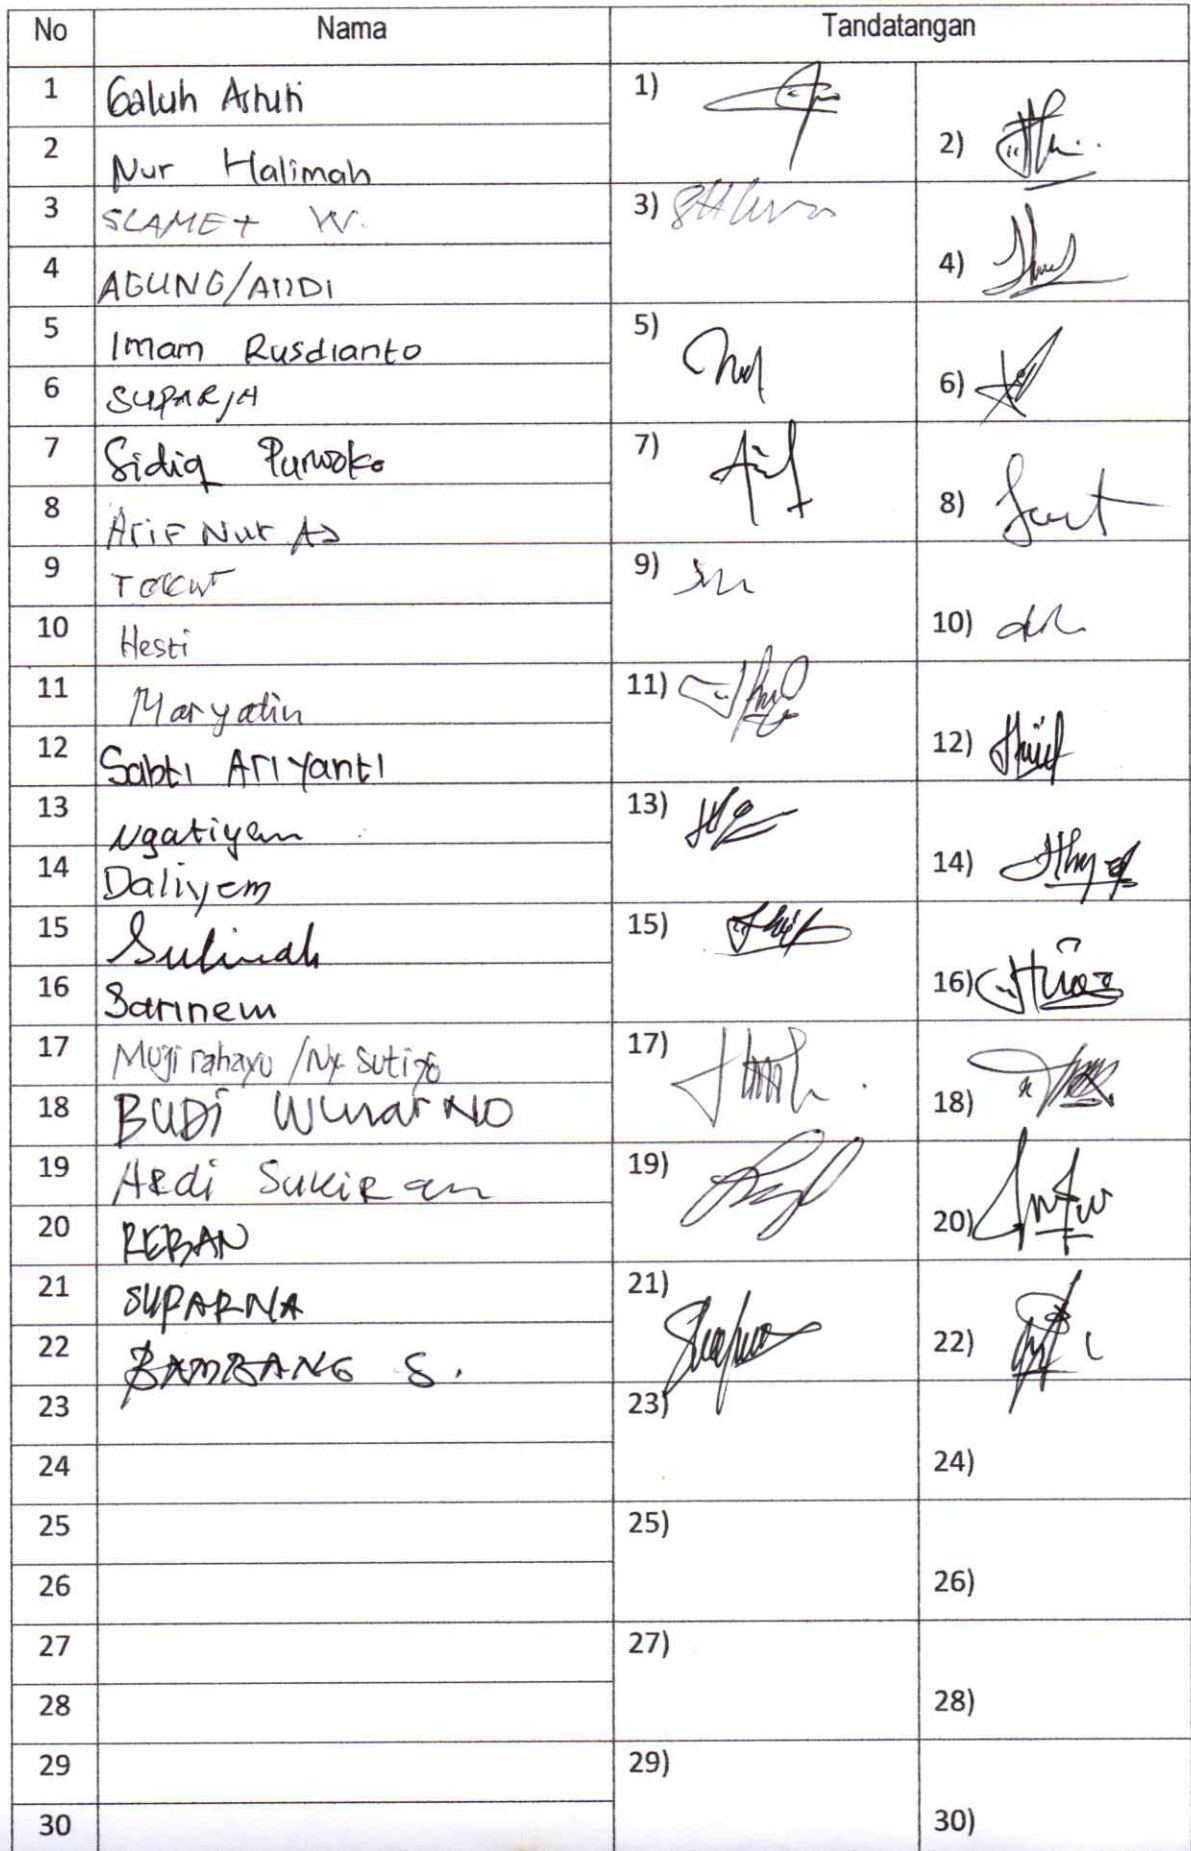 No Nama Tandatangan
1 Galuh Astuti 1)
2 Nur Halimah 2)
3 SLAMET W. 3)
4 AGUNG/ANDI 4)
5 Imam Rusdianto 5)
6 SUPARJA 6)
7 Sidiq Purwoko 7)
8 Arif Nur 8)
9 9)
10 Hesti 10)
11 Maryatin 11)
12 Sabti Ariyanti 12)
13 Ngatiyem 13)
14 Daliyem 14)
15 Sulinah 15)
16 Sarinem 16)
17 Muji rahayu /Ny. 17)
18 BUDI WINARNO 18)
19 Ardi Sukiran 19)
20 REBAN 20)
21 SUPARNA 21)
22 BAMBANG S. 22)
23 23)
24 24)
25 25)
26 26)
27 27)
28 28)
29 29)
30 30)